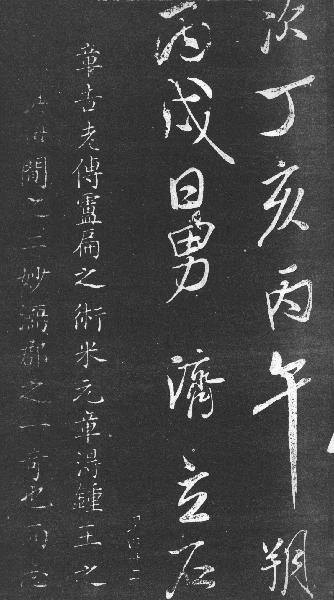 次丁亥丙午朔
丙戌日男濟立石
章吉老傳盧扁之術米元章淂鍾王之
間之二妙濡郡之一奇也而